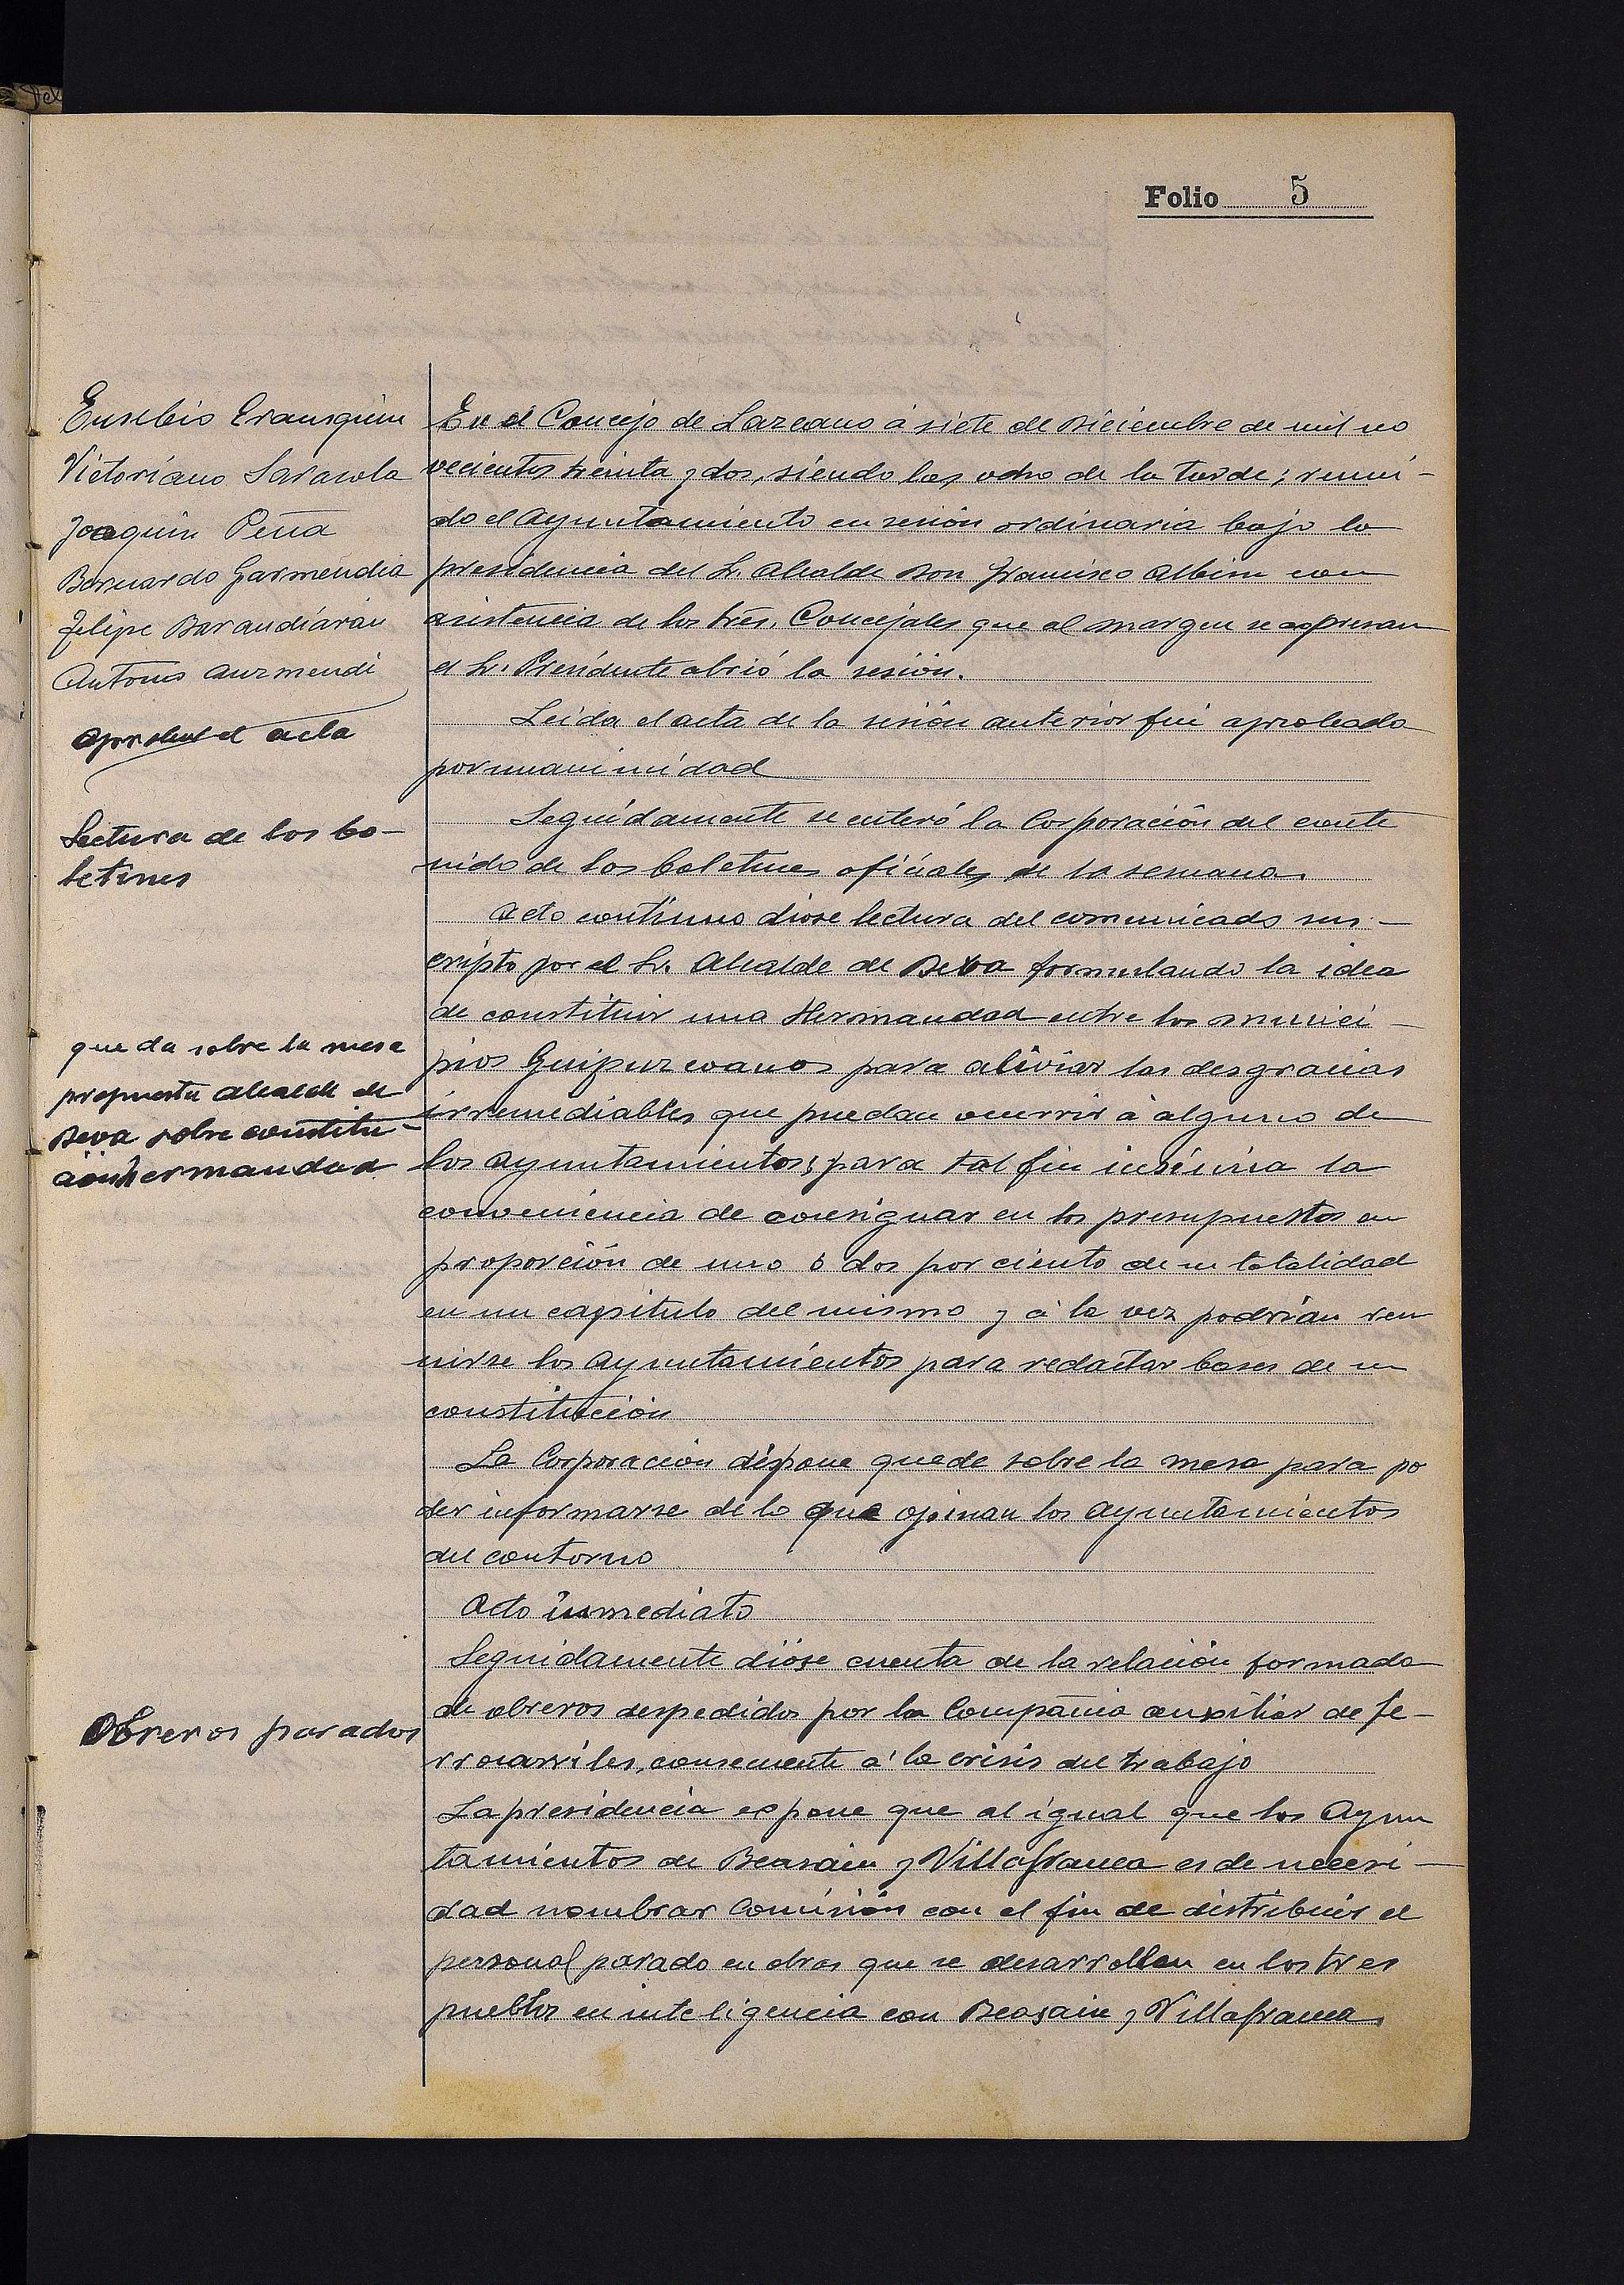 Folio 5
Eusebio Erausquin
Victoriano Sarasola
Joaquin Peña
Bernardo Garmendia
Felipe Barandiarán
Antonio Aurmendi
Aprobar el acta
Lectura de los bo-
letines
queda sobre la mesa
propuesta Alcalde de
Deva sobre constitu-
ción hermandad
Obreros parados
En el Concejo de Lazcano á siete de Diciembre de mil no
vecientos treinta y dos, siendo las ocho de la tarde; reuni-
do el Ayuntamiento en sesión ordinaria bajo la
presidencia del Sr. Alcalde Don Francisco Albisu con
asistencia de los Sres. Concejales que al margen se expresan
el Sr. Presidente abrió la sesión.
Leida el acta de la sesión anterior fué aprobada
por unanimidad
Seguidamente se enteró la Corporación del conte
nido de los boletines oficiales de la semana.
Acto continuo dióse lectura del comunicado sus-
cripto por el Sr. Alcalde de Deva formulando la idea
de constituir una Hermandad entre los munici-
pios Guipuzcoanos para aliviar las desgracias
irremediables que puedan ocurrir á alguno de
los Ayuntamientos, para tal fin insinúa la
conveniencia de consignar en los presupuestos en
proporción de uno ó dos por ciento de su totalidad
en un capítulo del mismo y á la vez podrían reu
nirse los Ayuntamientos para redactar bases de su
constitución
La Corporación dispone quede sobre la mesa para po
der informarse de lo que opinan los Ayuntamientos
del contorno
Acto inmediato
Seguidamente dióse cuenta de la relación formada
de obreros despedidos por la Compañia auxiliar de fe-
rrocarriles, consecuente á la crisis del trabajo
La presidencia expone que al igual que los Ayun
tamientos de Beasain y Villafranca es de necesi-
dad nombrar Comisión con el fin de distribuir el
personal parado en obras que se desarrollan en los tres
pueblos en inteligencia con Beasain y Villafranca.